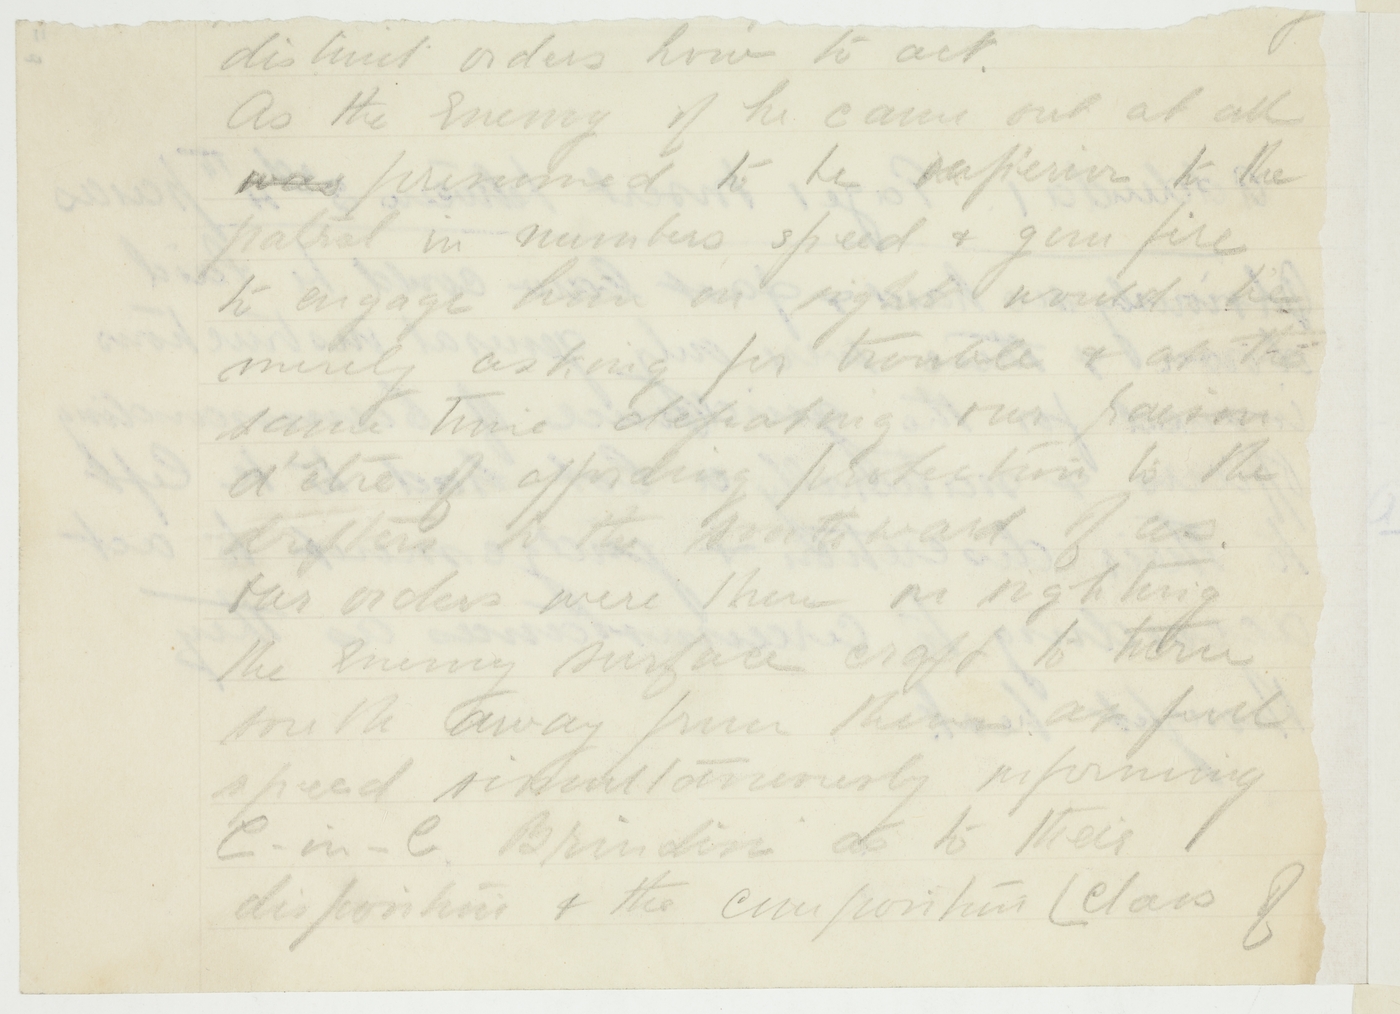 distinct orders how to act.
As the Enemy if he came out at all
was presumed to be superior to the
patrol in numbers speed & gun fire
to engage him on sight would be
merely asking for trouble & at the
same time defeating our raison
d'être of affording protection to the
drifters to the southward of us.
Our orders were then on sighting
the Enemy surface craft to turn
south away from them at full
speed simultaneously informing
C-in-C. Brindisi as to their
disposition & the composition (Class of